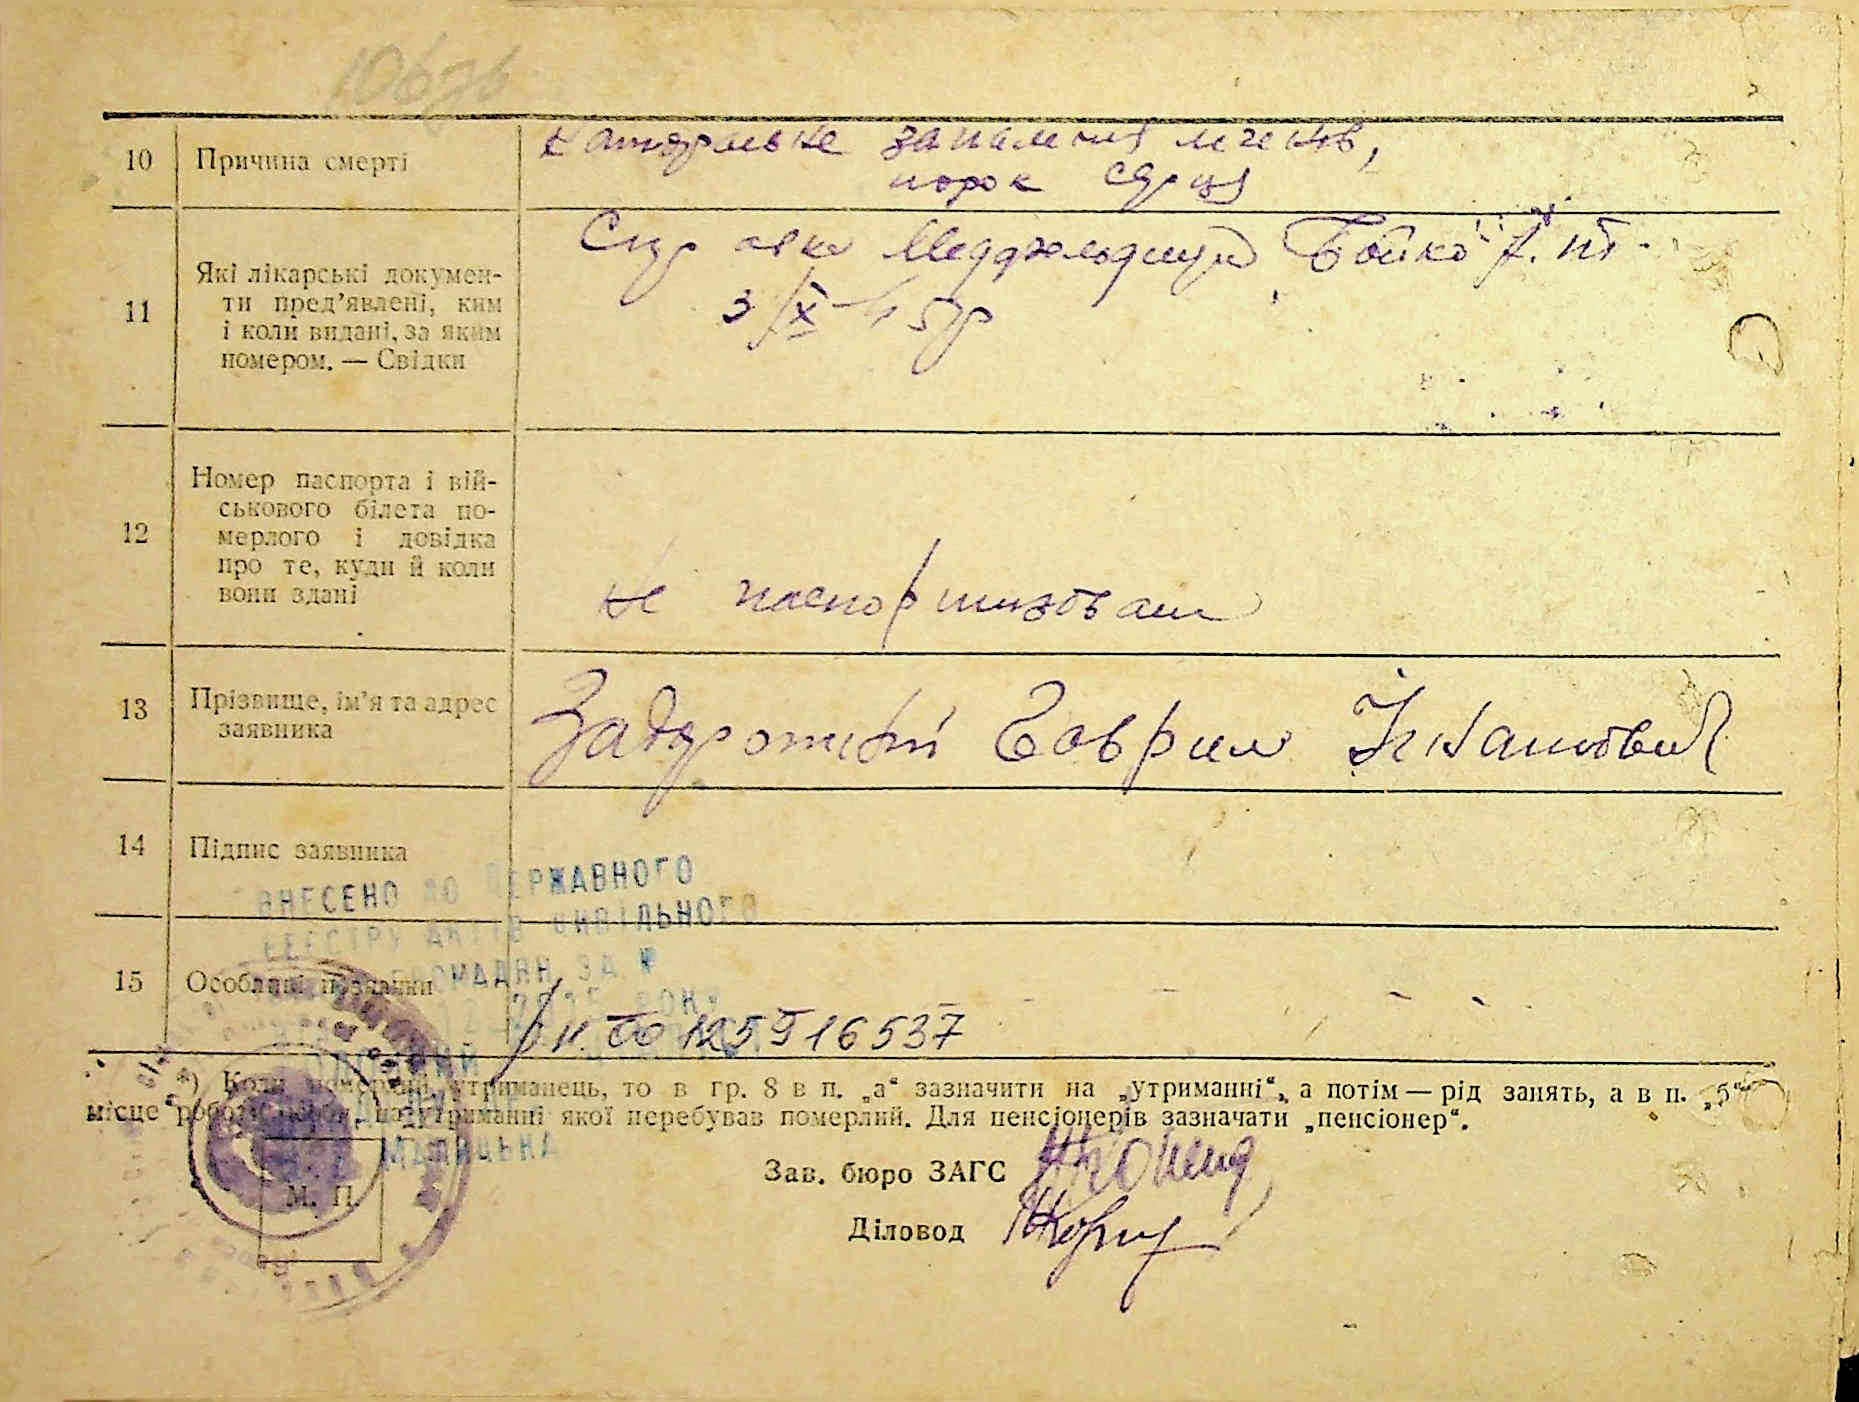 10
Причина смерті
Катаральне запалення легенів,
порок серця
11
Які лікарські докумен-
ти пред’явлені, ким
і коли видані, за яким
номером. — Свідки
Справка Бойко
3/X 45р
12
Номер паспорта і вій-
ськового білета по-
мерлого і довідка
про те, куди й коли
вони здані
не паспортизован
13
Прізвище, ім’я та адрес
заявника
Задорожній Гаврил Игнатович
14
Підпис заявника
ВНЕСЕНО ДО ДЕРЖАВНОГО
РЕЄСТРУ АКТІВ ЦИВІЛЬНОГО
ГРОМАДЯН ЗА №
РОКУ
15
Особливі познаки
00125916537
*) Коли померлий утриманець, то в гр. 8 в п. „а“ зазначити на „утриманні“, а потім — рід занять, а в п. „б“
місце роботи особи, на утриманні якої перебував померлий. Для пенсіонерів зазначати „пенсіонер“.
МАЛИЦЬКА
Зав. бюро ЗАГС
М. П.
Діловод